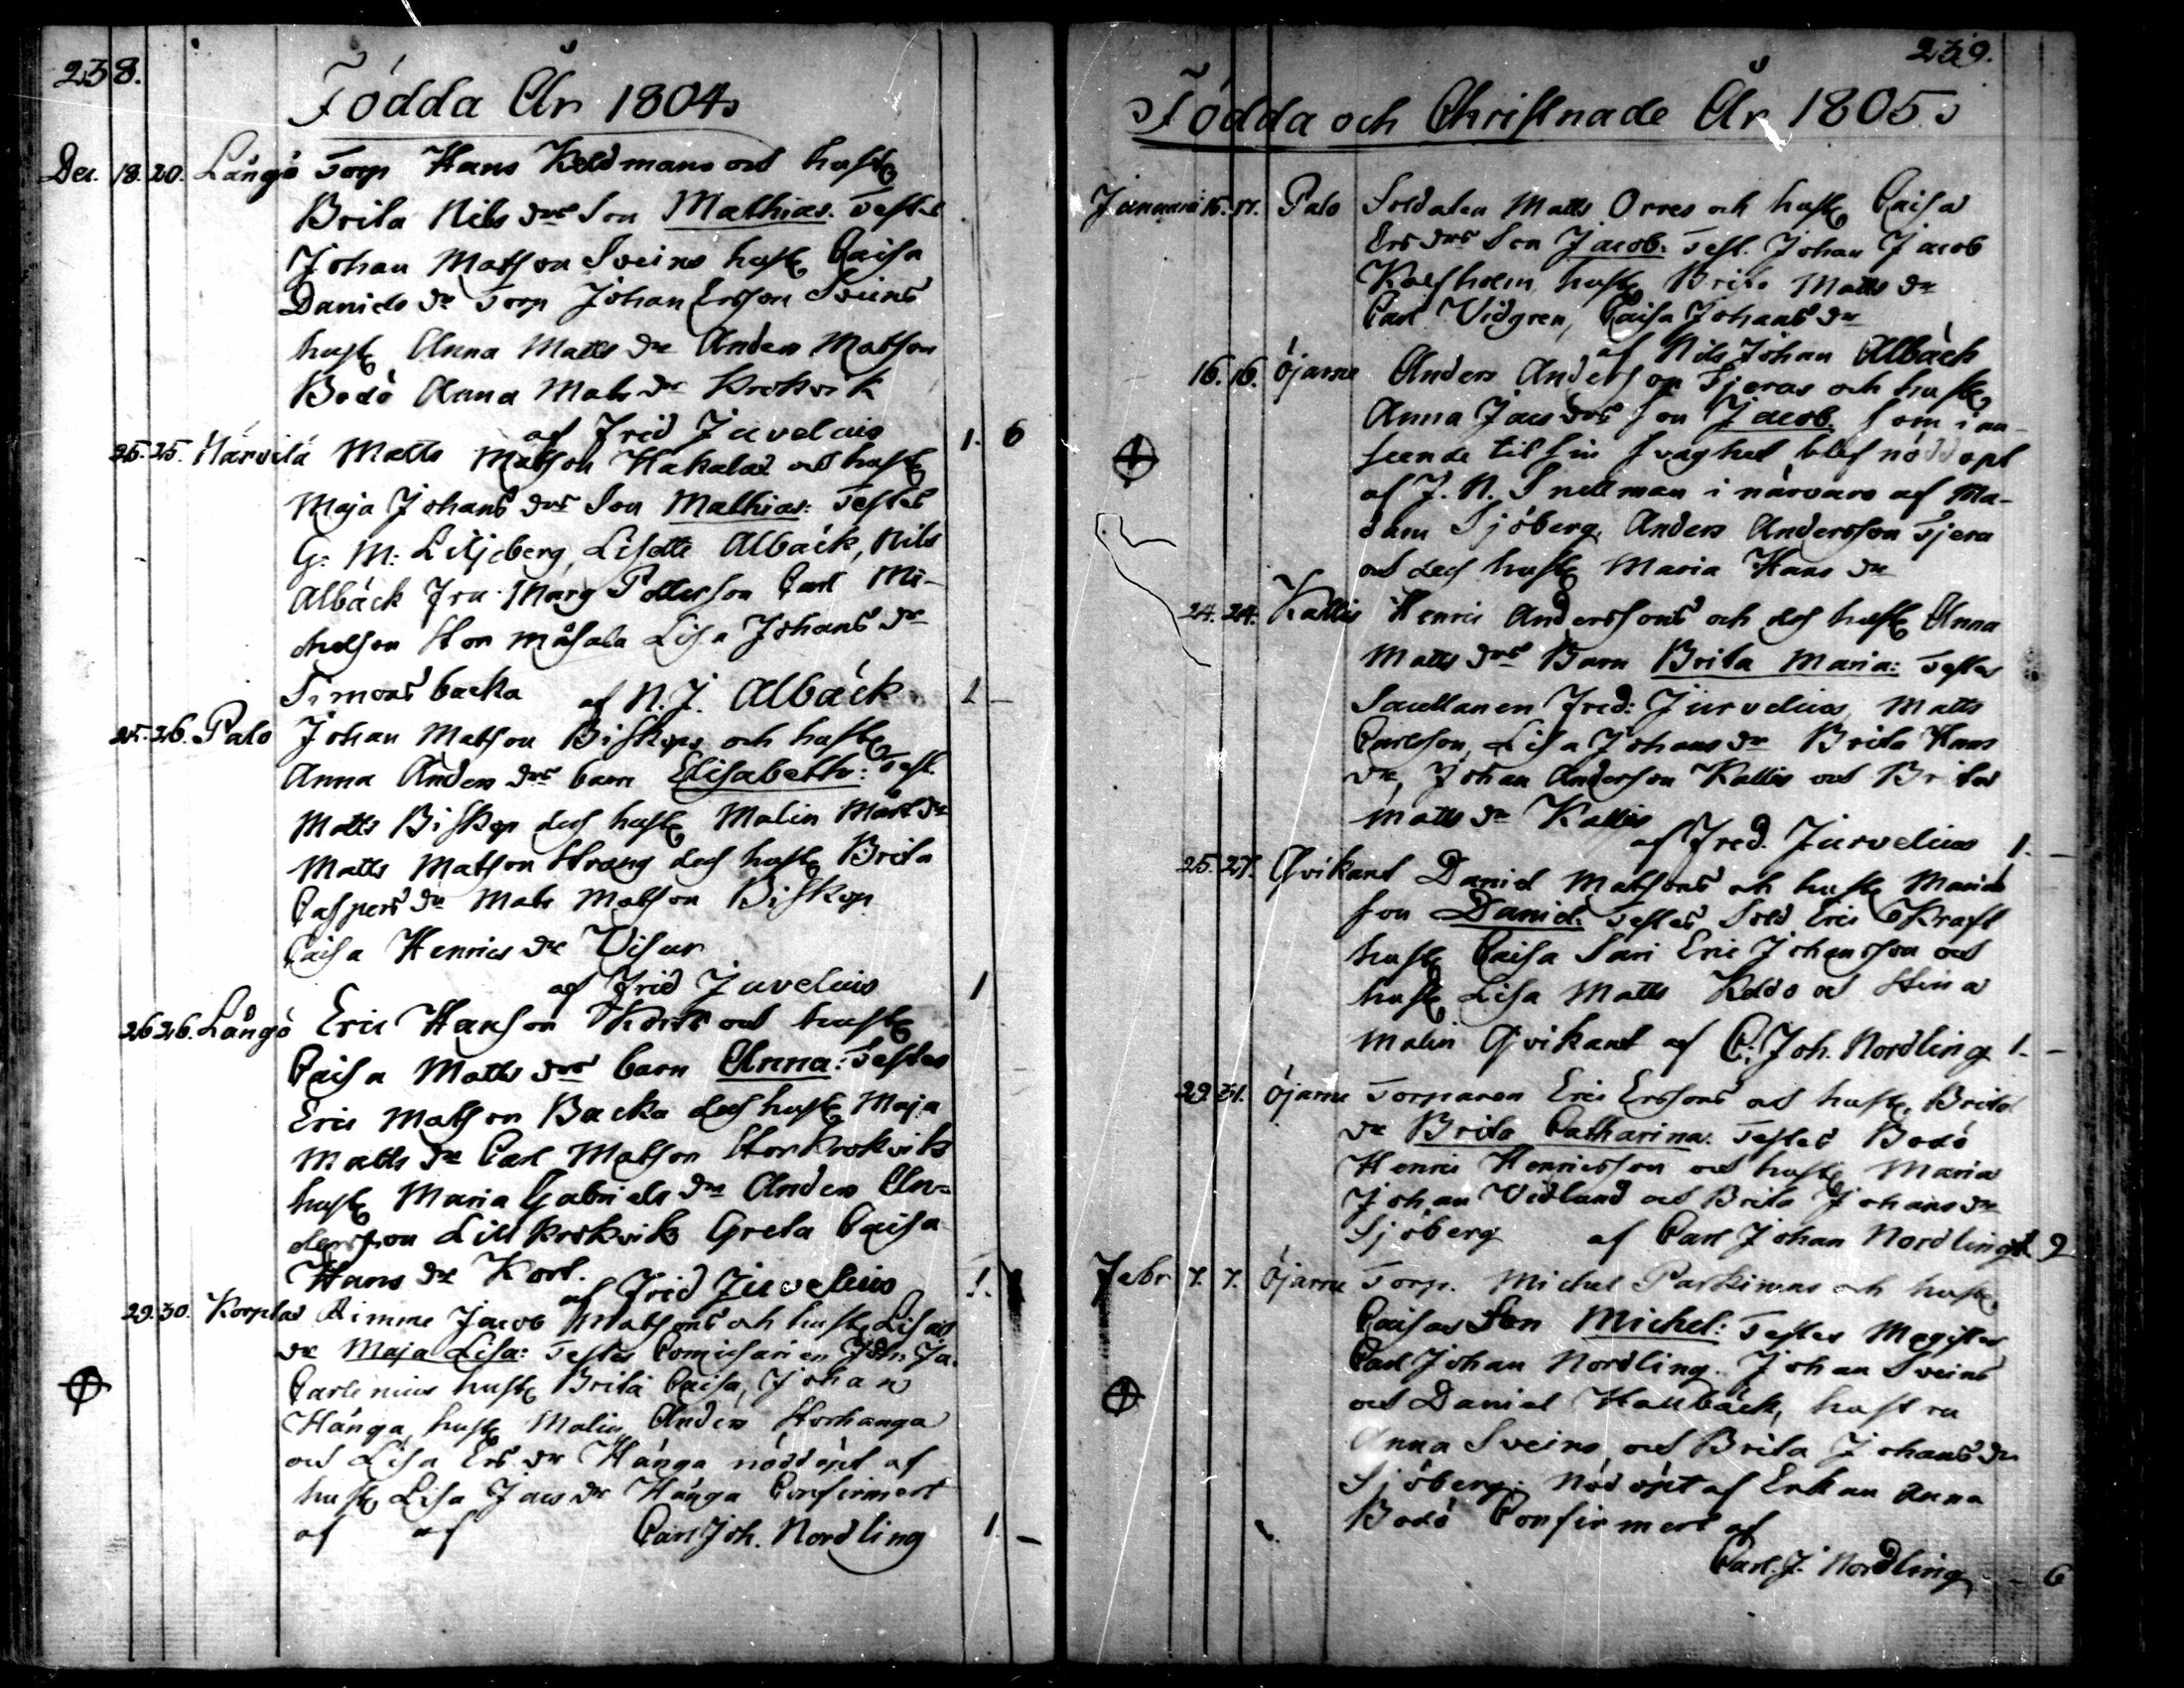 238.
Födda År 1804
Dec. 18. 20. Långö Torp Hans Keldmans och hust
Brita Nils drs Son Mathias. Testes
Johan Matson Sveins hust Caisa
Daniels dr Torp Johan Ersson Sveins
hust Anna Matts dr Anders Matson
Bodö Anna Mats dr Krokvik
af Frid Juvelius
25. 25. Härvilä Matts Matson Hakalas och hust 1. 6
Maja Johans drs Son Mathias: Testes
G: M: Liljeberg, Lisette Albäck, Nils
Albäck Fru Marg Petterson Carl Mi-
chelson Stor måsala Lisa Johans dr
Simons backa af N. J. Albäck 1 –
25. 26. Palo Johan Matson Biskops och hust
Anna Anders drs barn Elisabeth: Test.
Matts Biskop des hust Malin Mart dr
Matts Matson Strang des hust Brita
Caspers dr Mats Matson Biskop
Caisa Henrics dr Visur
af Frid Juvelius 1
26 26. Långö Eric Hanson Korts och hust
Caisa Matts drs barn Anna: Testes
Eric Matson Backa des hust Maja
Matts dr Carl Matson Storkrokviks
hust Maria Gabriels dr Anders An-
dersson Lillkrokviks Greta Caisa
Hans dr Kort. af Frid Juvelius 1.
29. 30. Korplas Jacob Matsons och hust Lisas
dr Maja Lisa: Testes Comisarien Joh: Ja.
Carlenius hust Brita Caisa, Johan
Hånga, hust Malin, Anders Storhånga
och Lisa Ers dr Hånga nöddöpt af
hust Lisa Jacs dr Hånga Confirmert
af af Carl Joh. Nordling 1. –
239.
Födda och Christnade År 1805
Januarii 15. 17. Palo Soldaten Matts Orres och hust Caisa
Ers drs Son Jacob. Test. Johan Jacob
Kalsholm hust Brita Matts dr
Carl Vidgren, Caisa Johans dr
af Nils Johan Albäck
16. 16. Öjarne Anders Anderson Tjeras och hust
Anna Jacs drs son Jacob. som i an-
seende til sin svaghet blef nöddöpt
af J. N. Snellman i närvaro af Ma-
dam Sjöberg, Anders Andersson Tjera
och des hust Maria Hans dr
24. 24. Kallis Henric Anderssons och des hust Anna
Matts drs Barn Brita Maria: Testes
Fred: Jurvelius, Matts
Carlson, Lisa Johans dr Brita Hans
dr, Johan Anderson Kallis och Brita
Matts dr Kallis
af Fred. Jurvelius 1. –
25. 27. Qvikant Daniel Matsons och hust Marias
son Daniel: Testes Sold Eric Kraft
hust Caisa Sari Eric Johansson och
hust Lisa Matts och Stina
Malin Qvikant af C: Joh. Nordling 1. –
29 31. Öjarne Torparen Eric Ersons och hust. Britas
dr Brita Catharina. Testes Bodö
Henric Henricsson och hust Maria
Johan Vidlund och Brita Johans dr
Sjöberg af Carl Johan Nordling 1. 9
Febr 7. 7. Öjarne Torp. Michel Paskinens och hust.
Caisas Son Michel: Testes Magister
Carl Johan Nordling. Johan Sveins
och Daniel Hallbäck, hustru
Anna Sveins och Brita Johans dr
Sjöberg: Nöd öpt af Enkan Anna
Bodö Confirmert af
Carl. J. Nordling – 6